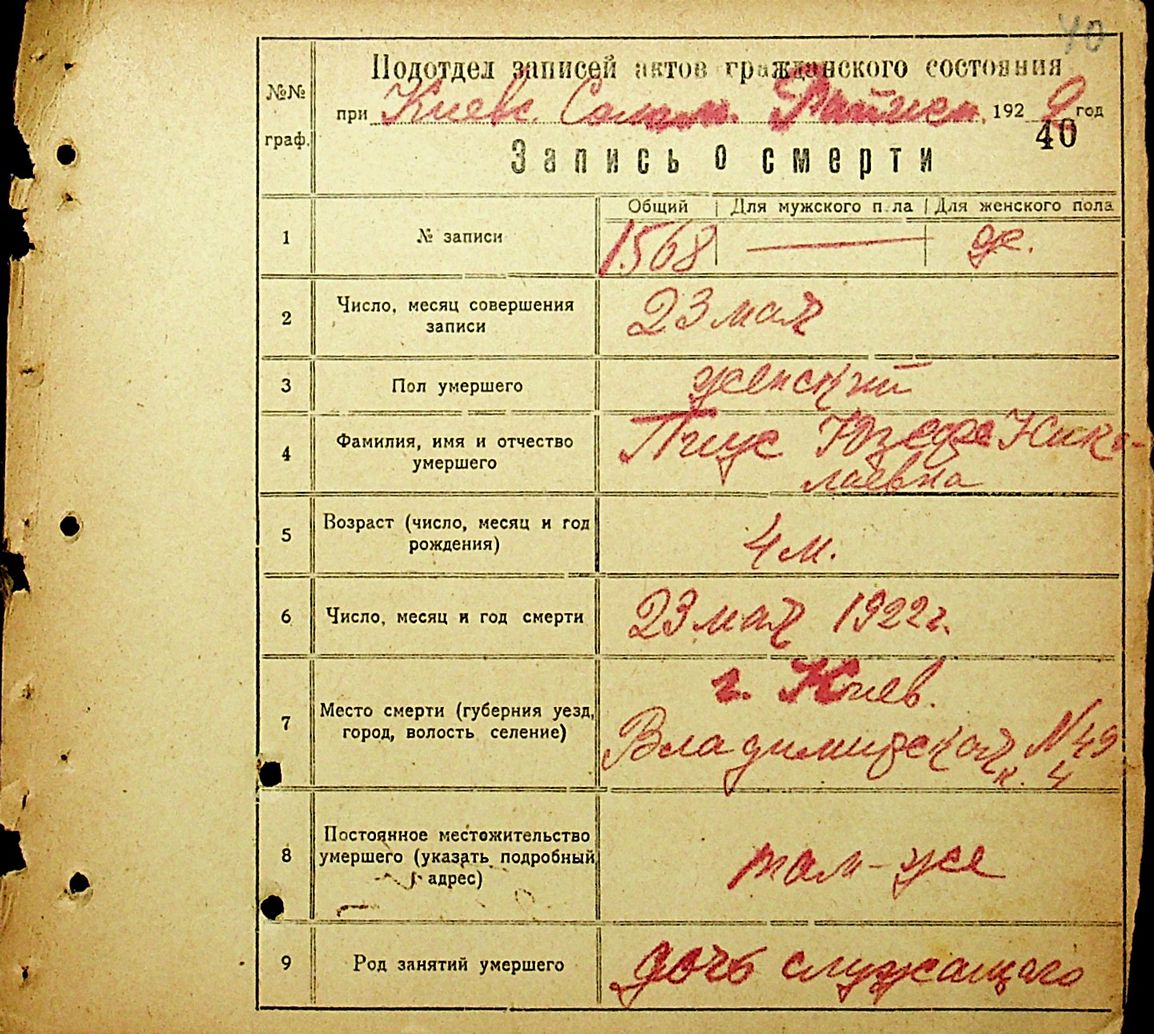 40
№№ граф.
Подотдел записей актов гражданского состояния
при Киевс. Солом. , 1922 год
40
Запись о смерти
Общий | Для мужского пола | Для женского пола
1 № записи 1568 — ж.
2 Число, месяц совершения
записи
23 мая
3 Пол умершего женский
4 Фамилия, имя и отчество
умершего
Юзефа Нико-
лаевна
5 Возраст (число, месяц и год
рождения)
4 м.
6 Число, месяц и год смерти 23 мая 1922 г.
7 Место смерти (губерния уезд,
город, волость селение)
г. Киев.
Владимирская № 49
к. 4
8 Постоянное местожительство
умершего (указать подробный
адрес)
там-же
9 Род занятий умершего дочь служащего